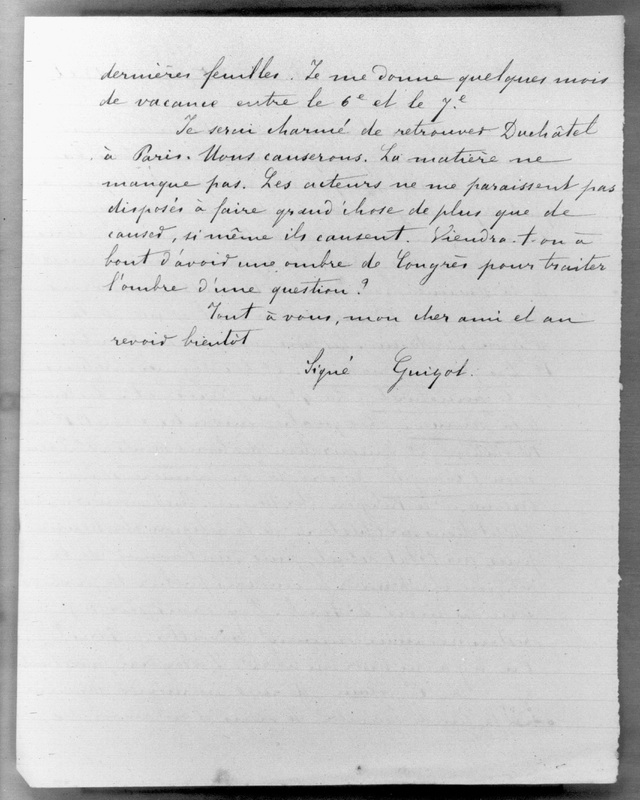 dernières feuilles. Je me donne quelques mois
de vacance entre le 6e et le 7.e
Je serai charmé de retrouver Duchâtel
à Paris. Nous causerons. La matière ne
manque pas. Les acteurs ne me paraissent pas
disposés à faire grand'chose de plus que de
causer, si même ils causent. Viendra-t-on à
bout d'avoir une ombre de Congrès pour traiter
l'ombre d'une question ?
Tout à vous, mon cher ami et au
revoir bientôt
Signé Guizot.